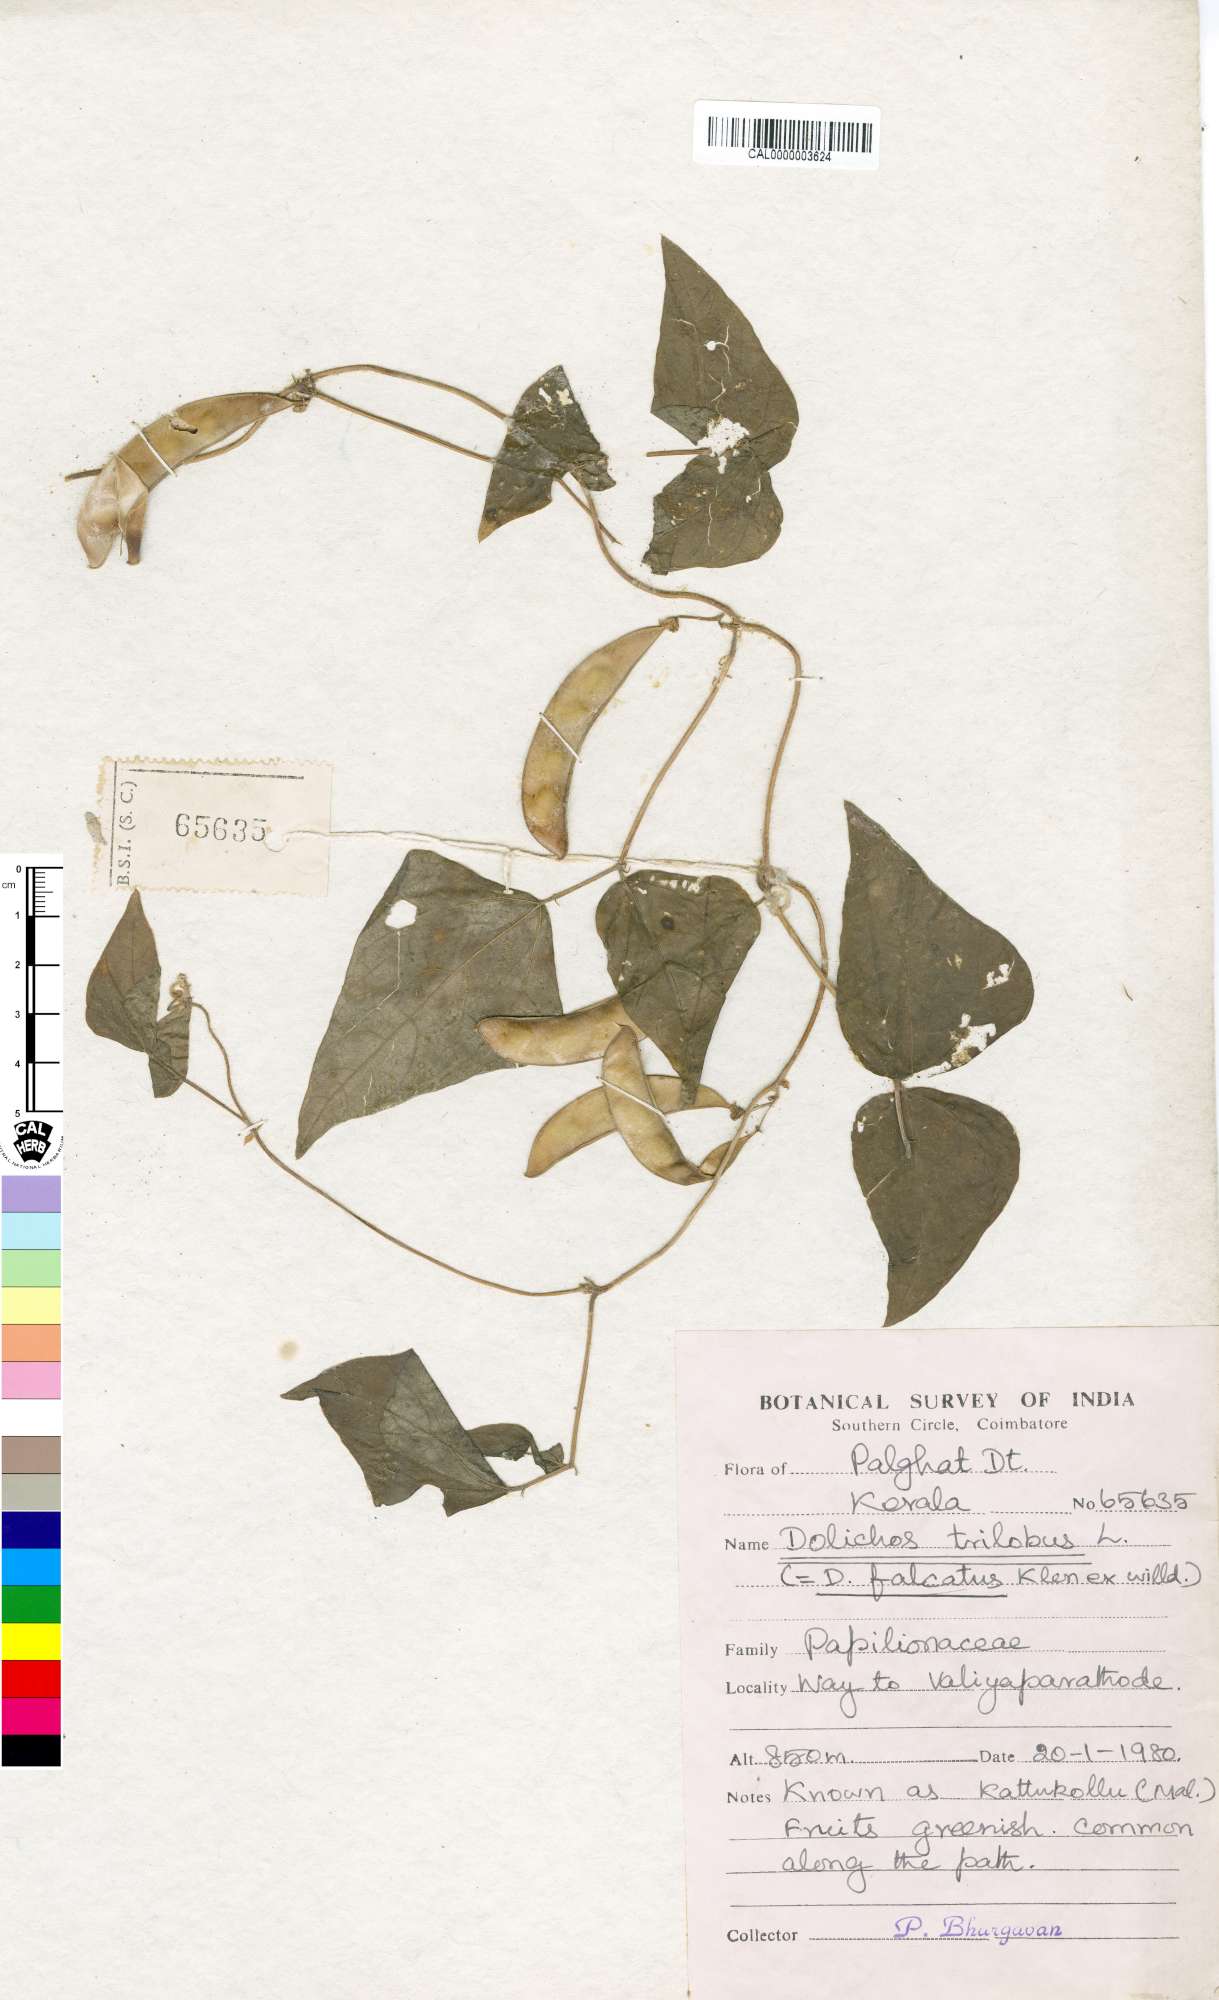 CAL0000003624
B.S.I. (S. C.)
65635
0
cm
1
2
3
4
5
CAL
HERB
BOTANICAL SURVEY OF INDIA
Southern Circle, Coimbatore
Flora of Palghat Dt.
Kerala No 65635
Name Dolichos trilobus L.
(= D. falcatus Klen ex willd.)
Family Papilionaceae
Locality Way to Valiyaparathode.
Alt. 850m. Date 20-1-1980.
Notes Known as Kattukollu (Mal.)
Fruits greenish. Common
along the path.
Collector P. Bhargavan